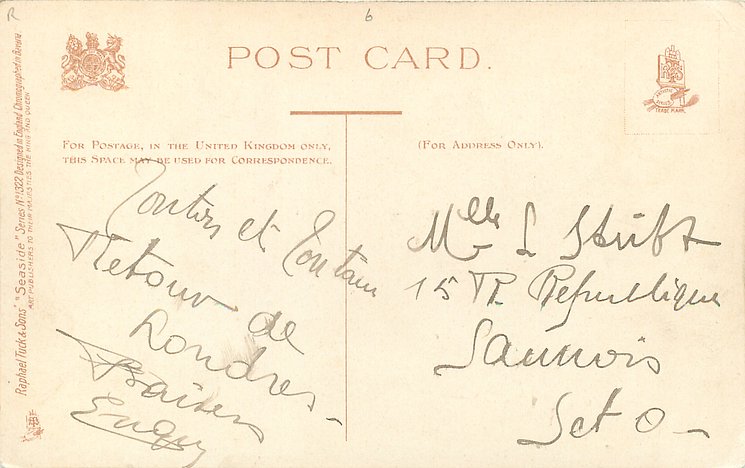 R
6
POST CARD.
FOR POSTAGE, IN THE UNITED KINGDOM ONLY,
THIS SPACE MAY BE USED FOR CORRESPONDENCE.
(FOR ADDRESS ONLY).
TRADE MARK
Raphael Tuck & Sons' "Seaside" Series No 1322 Designed in England Chromographed in Bavaria
ART PUBLISHERS TO THEIR MAJESTIES THE KING AND QUEEN
et
Retour de
Londres
Baisers
Mlle L
15 République
Sannois
Set O